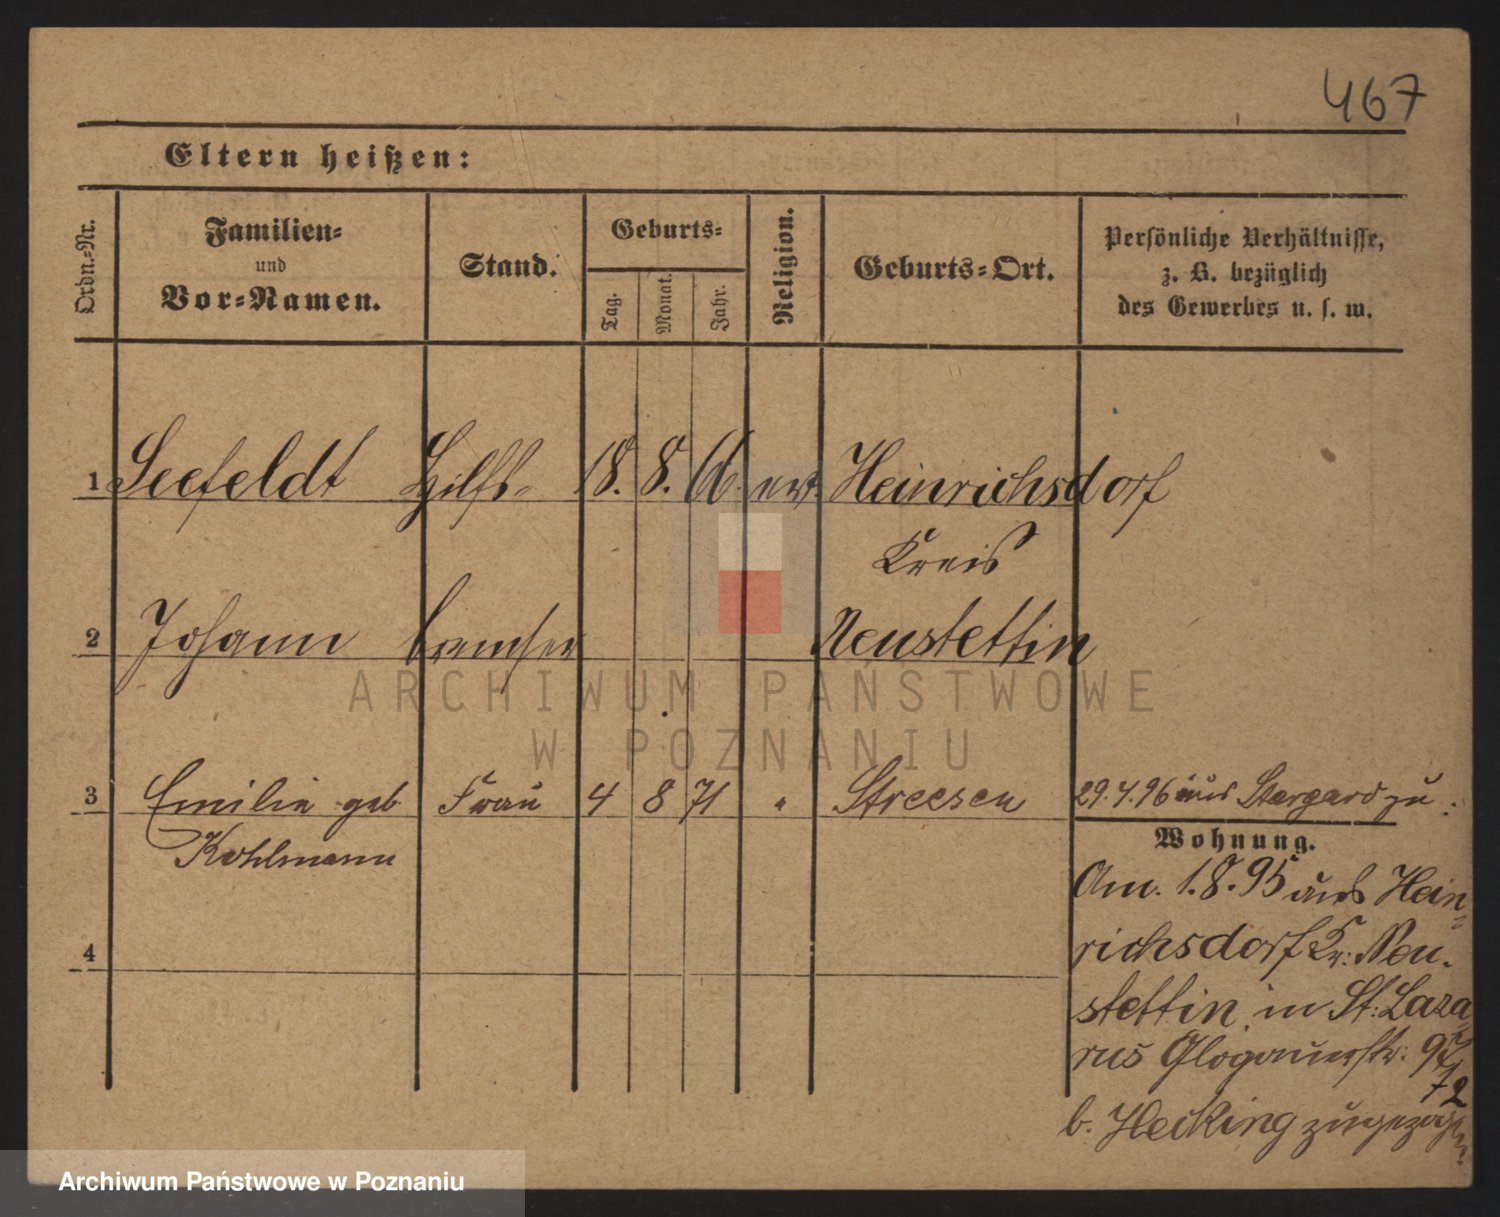 467
Eltern heißen:
Ordn.-Nr.
Familien-
und
Vor-Namen.
Stand.
Geburts-
Tag.
Monat.
Jahr.
Religion.
Geburts-Ort.
Persönliche Verhältnisse,
z. B. bezüglich
des Gewerbes u. s. w.
1 Seefeldt Hilfs- 18. 8. 66 ev. Heinrichsdorf
Kreis
2 Johann bremser Neustettin
ARCHIWUM PAŃSTWOWE
W POZNANIU
3 Emilie geb Frau 4 8 71 " Streesen 29.4.96 aus Stargard zu.
Kohlmann
Wohnung.
Am. 1.8.95 aus Hein-
richsdorf Kr: Neu-
4
stettin in St: Laza-
rus Glogauerstr:
72
b. Hecking zugezogen.
Archiwum Państwowe w Poznaniu